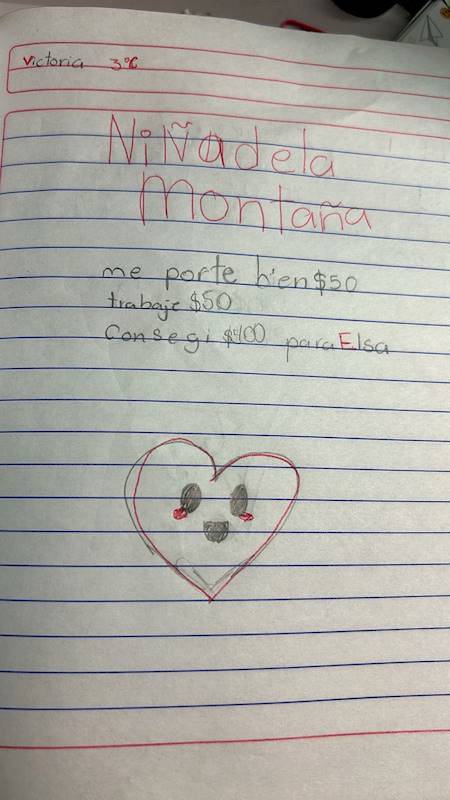 Victoria 3°C
Niña de la
montaña
me porte bien $50
trabaje $50
Consegi $400 para Elsa